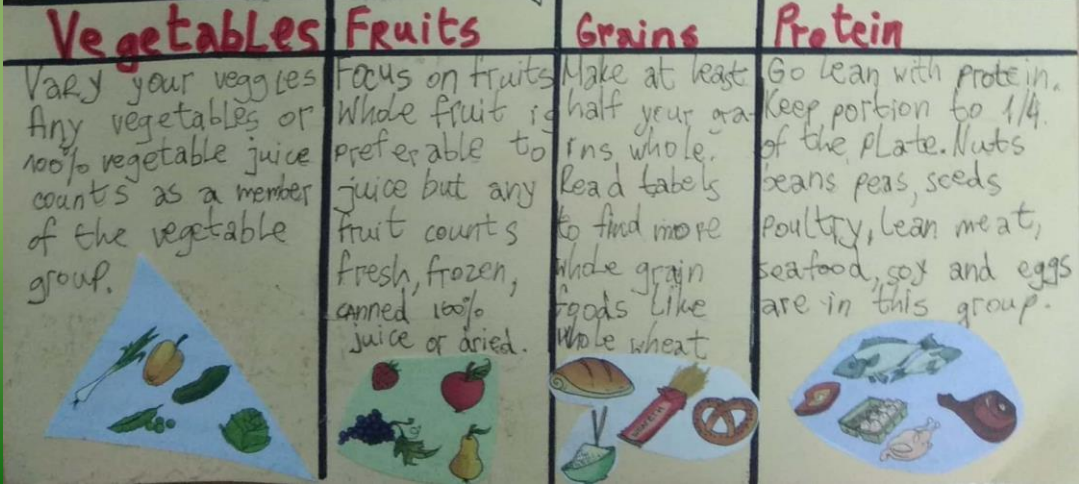 Vegetables
Vary your veggies
Any vegetables or
100% vegetable juice
counts as a member
of the vegetable
group.
Fruits
Focus on fruits
Whole fruit is
preferable to
juice but any
fruit counts
fresh, frozen,
canned 100%
juice or dried.
Grains
Make at least
half your gra-
ins whole.
Read labels
to find more
whole grain
foods like
whole wheat
Protein
Go lean with protein.
Keep portion to 1/4.
of the plate. Nuts
beans peas, seeds
poultry, lean meat,
seafood, soy and eggs
are in this group.